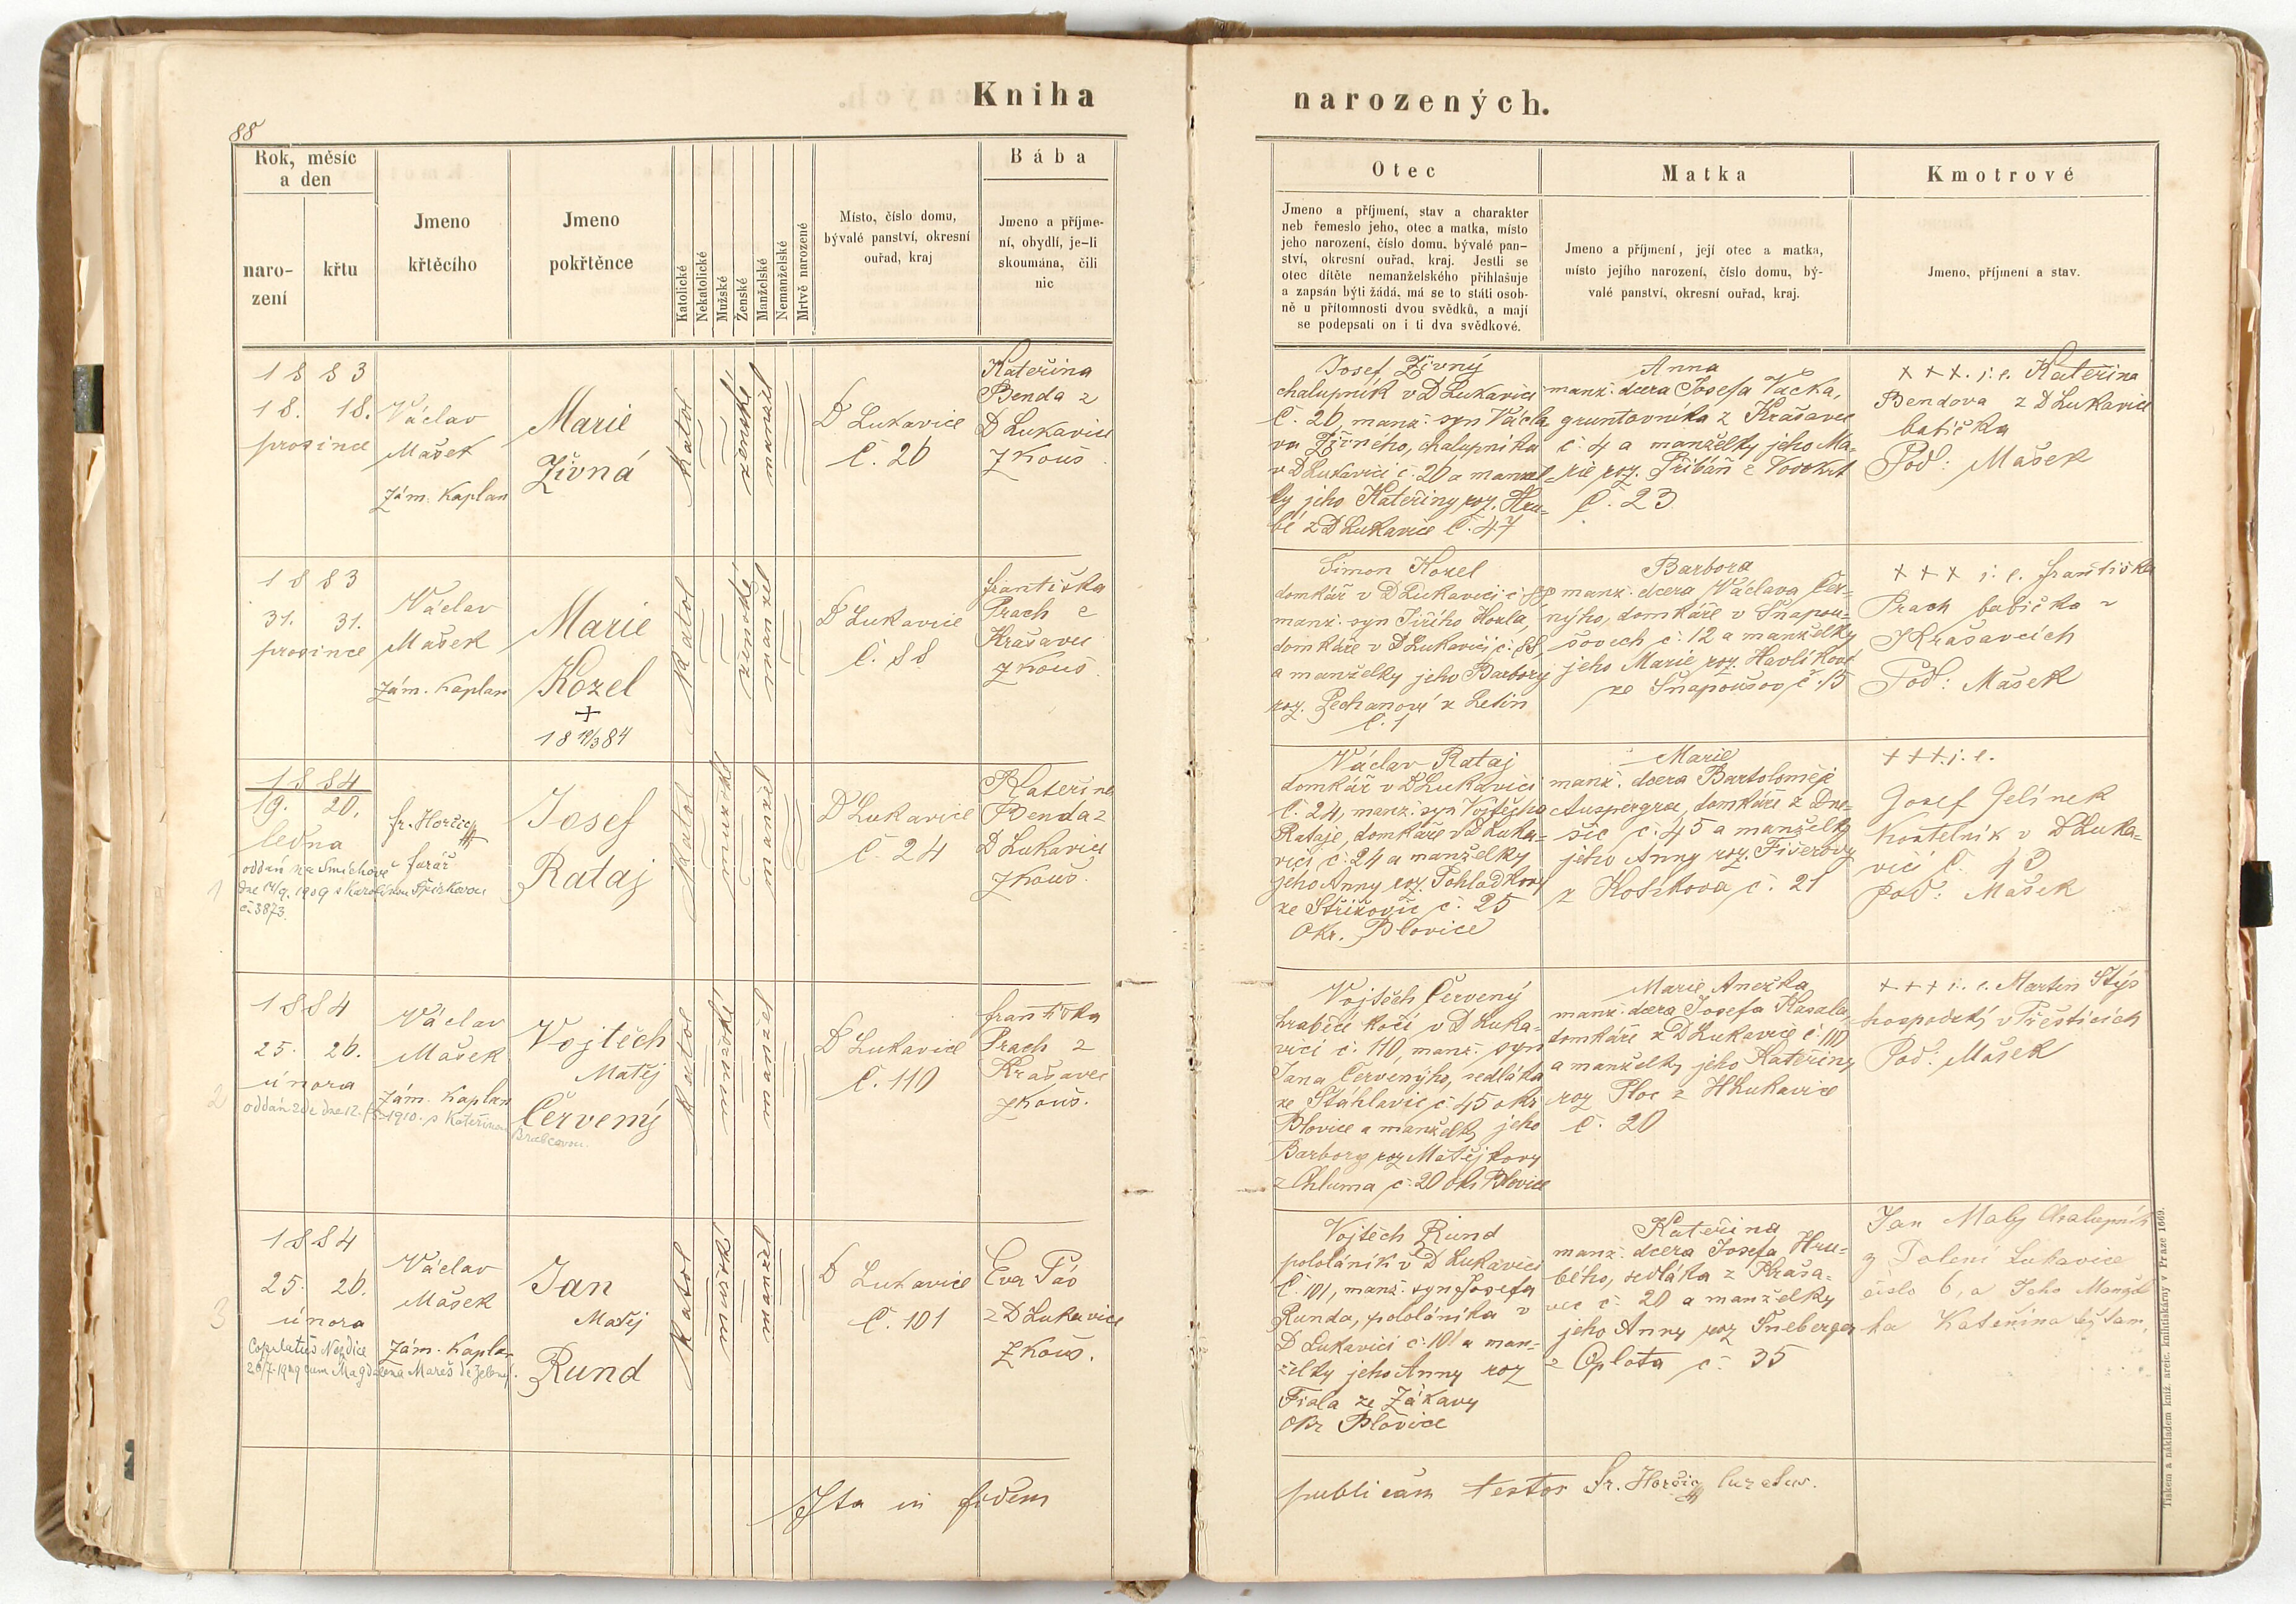 Kniha
narozených.
88
Rok, měsíc
a den
naro-
zení
křtu
Jmeno
křtěcího
Jmeno
pokřtěnce
Katolické
Nekatolické
Mužské
Ženské
Manželské
Nemanželské
Mrtvě narozené
Místo, číslo domu,
bývalé panství, okresní
ouřad, kraj
Bába
Jmeno a příjme-
ní, obydlí, je-li
skoumána, čili
nic
Otec
Jmeno a příjmení, stav a charakter
neb řemeslo jeho, otec a matka, místo
jeho narození, číslo domu, bývalé pan-
ství, okresní ouřad, kraj. Jestli se
otec dítěte nemanželského přihlašuje
a zapsán býti žádá, má se to státi osob-
ně u přítomnosti dvou svědků, a mají
se podepsati on i ti dva svědkové.
Matka
Jmeno a příjmení, její otec a matka,
místo jejího narození, číslo domu, bý-
valé panství, okresní ouřad, kraj.
Kmotrové
Jmeno, příjmení a stav.
1883
18. 18.
prosince
Václav
Mašek
zám. kaplan
Marie
Živná
katol
ženské
manžel
D Lukavice
č. 26
Kateřina
Benda z
D Lukavice
zkouš.
Josef Živný
chalupník v D Lukavici
č. 26, manž. syn Václa
va Živného, chalupníka
v D Lukavici č. 26 a manžel
ky jeho Kateřiny roz. Hru-
bé z D Lukavice č. 47
Anna
manž. dcera Josefa Vacka,
gruntovníka z Krašavec
č. 4 a manželky jeho Ma-
rie roz. Přibáň z
č. 23
+++. j. e. Kateřina
Bendova z D Lukavice
babička
Pod: Mašek
1883
31. 31.
prosince
Václav
Mašek
zám. kaplan
Marie
Kozel
+
18 19/3 84
katol
ženské
manžel
D Lukavice
č. 88
Františka
Prach z
Krašavec
zkouš.
Šimon Kozel
domkář v D Lukavici č.
manž. syn Jiřího Kozla,
domkáře v D Lukavici č. 88
a manželky jeho Barbory
roz. Zechanové z Letin
č. 1
Barbora
manž. dcera Václava Čer-
nýho, domkáře v Snapou-
šovech č. 12 a manželky
jeho Marie roz. Havlíkové
ze Snapoušov č. 15
+++ j. e. Františka
Prach babička v
Krašavcích
Pod: Mašek
1884
19. 20.
ledna
oddán na Smíchově
dne 14/9. 1909 s Karolínou
č. 3873.
1
fr. Horčic
farář
Josef
Rataj
katol
mužské
manžel
D Lukavice
č. 24
Kateřina
Benda z
D Lukavice
zkouš.
Václav Rataj
domkář v D Lukavici
č. 24, manž. syn Vojtěcha
Rataje, domkáře v D Luka-
vici č. 24 a manželky
jeho Anny roz. Pohladkovy
ze Střížovic č. 25
Okr. Blovice
Marie
manž. dcera Bartoloměje
Auspergra, domkáře z Dne-
šic č. 45 a manželky
jeho Anny roz. Fišerovy
z č. 21
+++. j. e.
Josef Jelínek
kostelník v D Luka-
vici č. 43
pod: Mašek
1884
25. 26.
února
oddán zde dne 12. 1910. s Kateřinou
Brabcovou.
2
Václav
Mašek
zám. kaplan
Vojtěch
Matěj
Červený
katol
mužské
manžel
D Lukavice
č. 110
Františka
Prach z
Krašavec
zkouš.
Vojtěch Červený
hraběcí kočí v D Luka-
vici č. 110, manž. syn
Jana Červenýho, sedláka
ze Štáhlavic č. 45 okr
Blovice a manželky jeho
Barbory roz Matějkovy
z Chluma č. 20 okr Blovice
Marie Anežka
manž. dcera Josefa Kasala,
domkáře z D Lukavice č. 110
a manželky jeho Kateřiny
roz Ploc z H Lukavice
č. 20
+++ i. e. Martin Stýs
hospodský v Přešticích
Pod: Mašek
1884
25. 26.
února
Copulatus Nezdice
26/7. 1909 cum Magdalena Mareš de Zelené.
3
Václav
Mašek
zám. kaplan
Jan
Matěj
Rund
katol
mužské
manžel
D Lukavice
č. 101
Eva Páv
z D Lukavice
zkouš.
Vojtěch Rund
pololáník v D Lukavici
č. 101, manž. syn Josefa
Runda, pololáníka v
D Lukavici č. 101 a man-
želky jeho Anny roz
Fiala ze Zákavy
okr Blovice
Kateřina
manž. dcera Josefa Hru-
bého, sedláka z Kraša-
vec č. 20 a manželky
jeho Anny roz Šneberger
z Oplota č. 35
Jan Malý Chalupník
z Dolení Lukavice
číslo 6, a Jeho Manžel
ka Kateřina též tam,
Ita in fidem
publicam testor Fr. Horčic curatus.
Tiskem a nákladem kníž. arcib. knihtiskárny v Praze 1669.